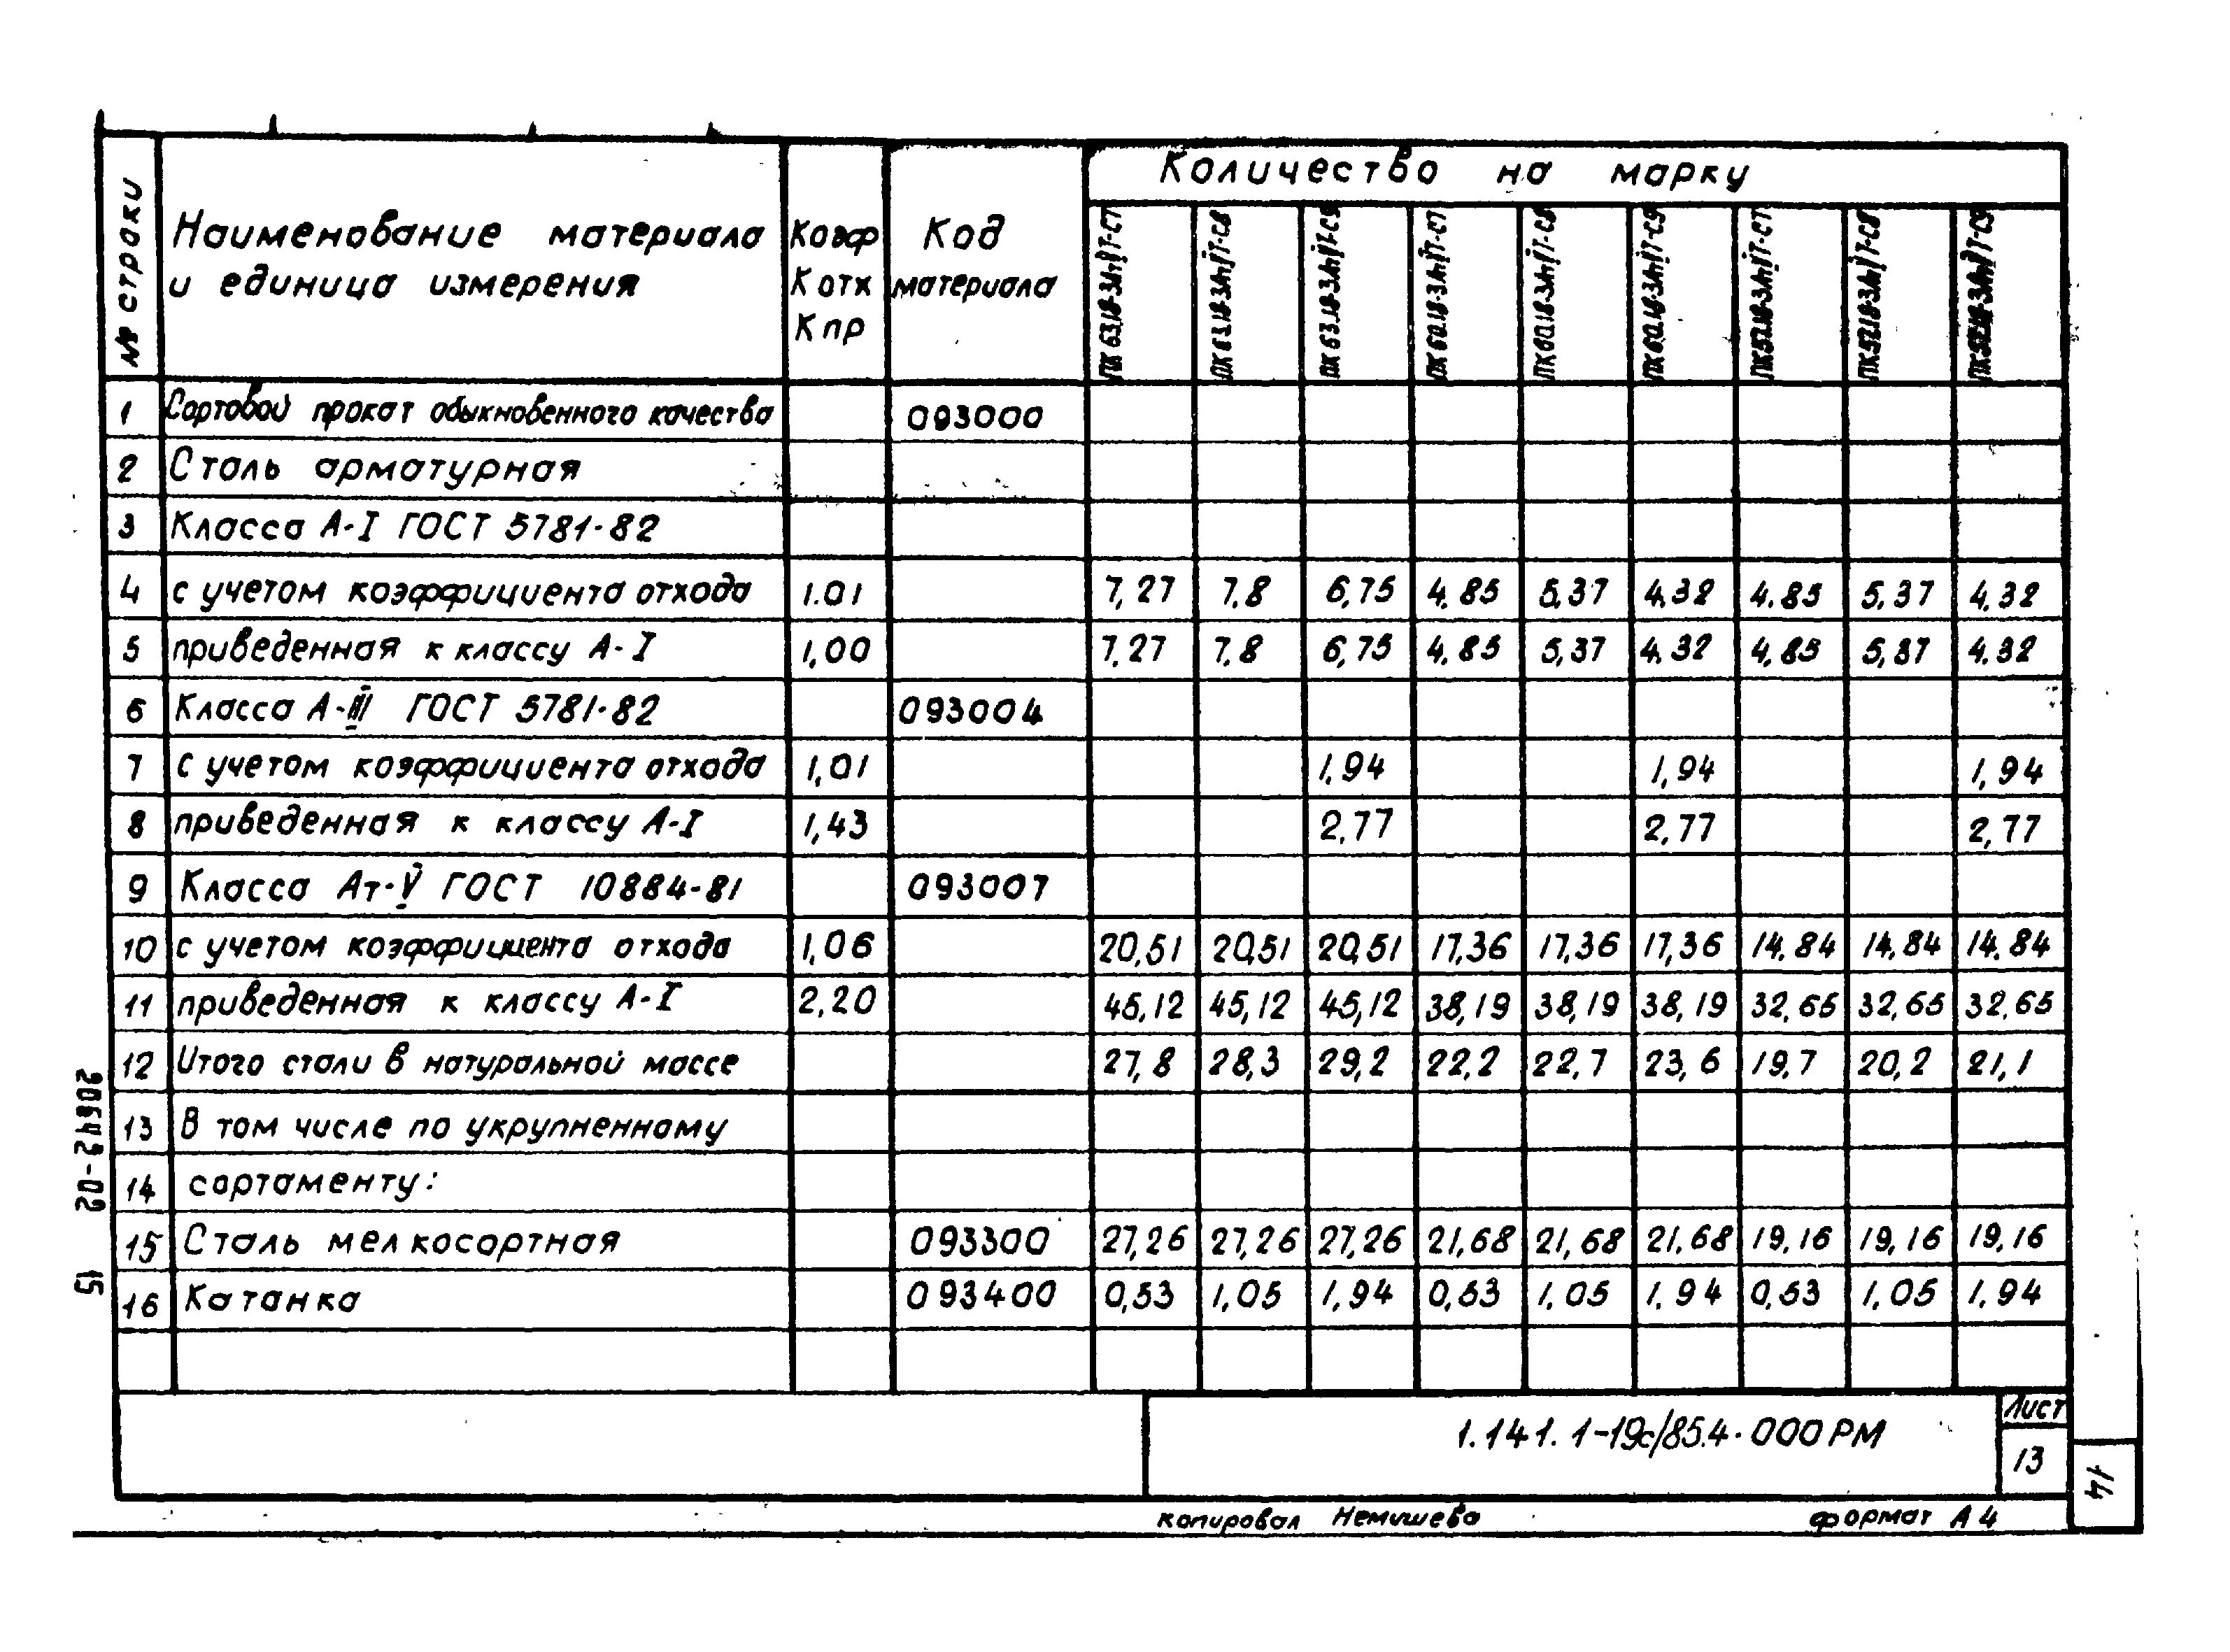 № строки | Наименование материала и единица измерения | Коэф Котх Кпр | Код материала | Количество на марку
1 | Сортовой прокат обыкновенного качества | | 093000
2 | Сталь арматурная
3 | Класса А-I ГОСТ 5781-82
4 | с учетом коэффициента отхода | 1.01 | | 7,27 | 7,8 | 6,75 | 4,85 | 5,37 | 4,32 | 4,85 | 5,37 | 4,32
5 | приведенная к классу А-I | 1,00 | | 7,27 | 7,8 | 6,75 | 4,85 | 5,37 | 4,32 | 4,85 | 5,37 | 4,32
6 | Класса А-III ГОСТ 5781-82 | | 093004
7 | с учетом коэффициента отхода | 1,01 | | | | 1,94 | | | 1,94 | | | 1,94
8 | приведенная к классу А-I | 1,43 | | | | 2,77 | | | 2,77 | | | 2,77
9 | Класса Ат-V ГОСТ 10884-81 | | 093007
10 | с учетом коэффициента отхода | 1,06 | | 20,51 | 20,51 | 20,51 | 17,36 | 17,36 | 17,36 | 14,84 | 14,84 | 14,84
11 | приведенная к классу А-I | 2,20 | | 45,12 | 45,12 | 45,12 | 38,19 | 38,19 | 38,19 | 32,65 | 32,65 | 32,65
12 | Итого стали в натуральной массе | | | 27,8 | 28,3 | 29,2 | 22,2 | 22,7 | 23,6 | 19,7 | 20,2 | 21,1
13 | В том числе по укрупненному
14 | сортаменту:
15 | Сталь мелкосортная | | 093300 | 27,26 | 27,26 | 27,26 | 21,68 | 21,68 | 21,68 | 19,16 | 19,16 | 19,16
16 | Катанка | | 093400 | 0,53 | 1,05 | 1,94 | 0,53 | 1,05 | 1,94 | 0,53 | 1,05 | 1,94
20642-02 15
1.141.1-19с/85.4-000 РМ
Лист
13
14
копировал Немишева формат А4